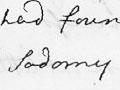 had foun
Sodomy